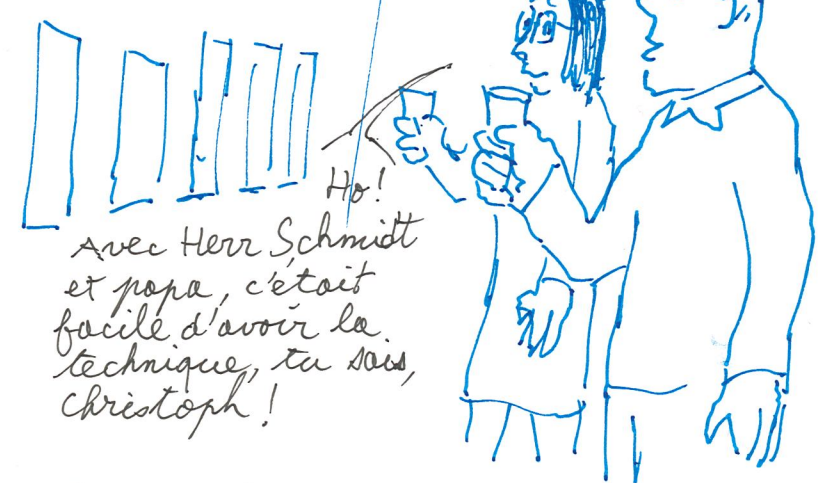 Ho!
Avec Herr Schmidt
et papa, c'était
facile d'avoir la
technique, tu sais,
Christoph !